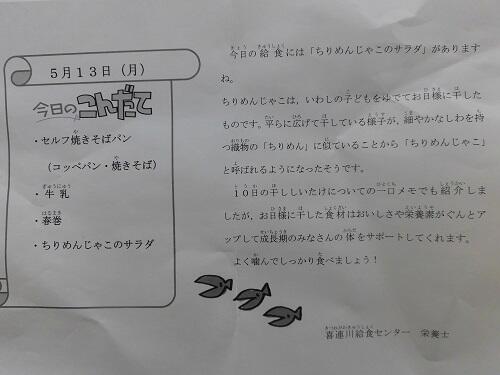 5月13日(月)
今日のこんだて
・セルフ焼きそばパン
(コッペパン・焼きそば)
・牛乳
・春巻
・ちりめんじゃこのサラダ
今日の給食には「ちりめんじゃこのサラダ」があります
ね。
ちりめんじゃこは，いわしの子どもをゆでてお日様に干した
ものです。平らに広げて干している様子が，細やかなしわを持
つ織物の「ちりめん」に似ていることから「ちりめんじゃこ」
と呼ばれるようになったそうです。
10日の干ししいたけについての一口メモでも紹介しま
したが，お日様に干した食材はおいしさや栄養素がぐんとア
ップして成長期のみなさんの体をサポートしてくれます。
よく噛んでしっかり食べましょう！
喜連川給食センター 栄養士